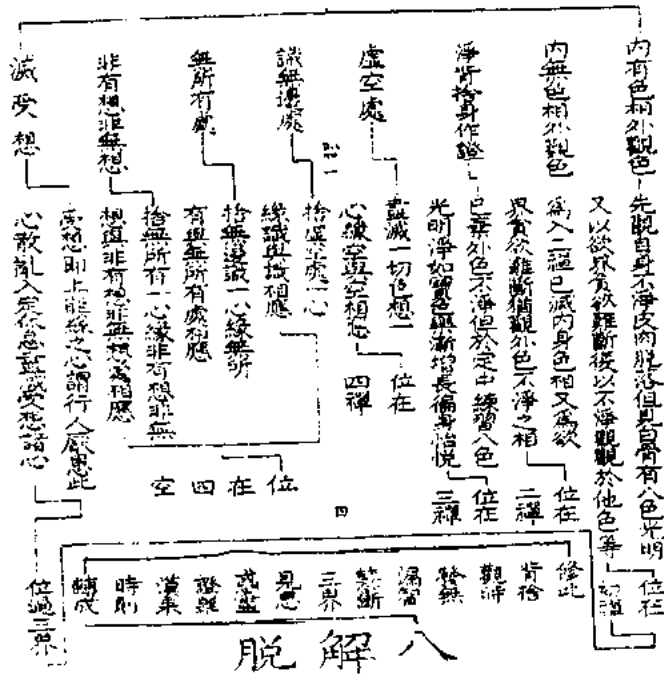 內有色相外觀色
先觀自身不淨皮肉脫落但見白骨有八色光明
又以欲界貪欲難斷復以不淨觀觀於他色等
位在
初禪
內無色相外觀色
為入二禪已滅內身色相又為欲
界貪欲難斷猶觀外色不淨之相
位在
二禪
淨背捨身作證
已棄外色不淨但於定中練習八色
光明淨如寶色漸漸增長徧身怡悅
位在
三禪
虛空處
盡滅一切色想一
心緣空與空相應
位在
四禪
識無邊處
捨虛空處一心
緣識與識相應
無所有處
捨無邊識一心緣無所
有與無所有處相應
非有想非無想
捨無所有一心緣非有想非無
想與非有想非無想為相應
位
在
四
空
滅受想
受想即上能緣之心謂行人厭患此
心散亂入定休息盡滅受想諸心
位過三界
修此
背捨
觀時
發無
漏智
慧斷
三界
見思
或盡
證羅
漢果
時則
轉成
八解脫
四